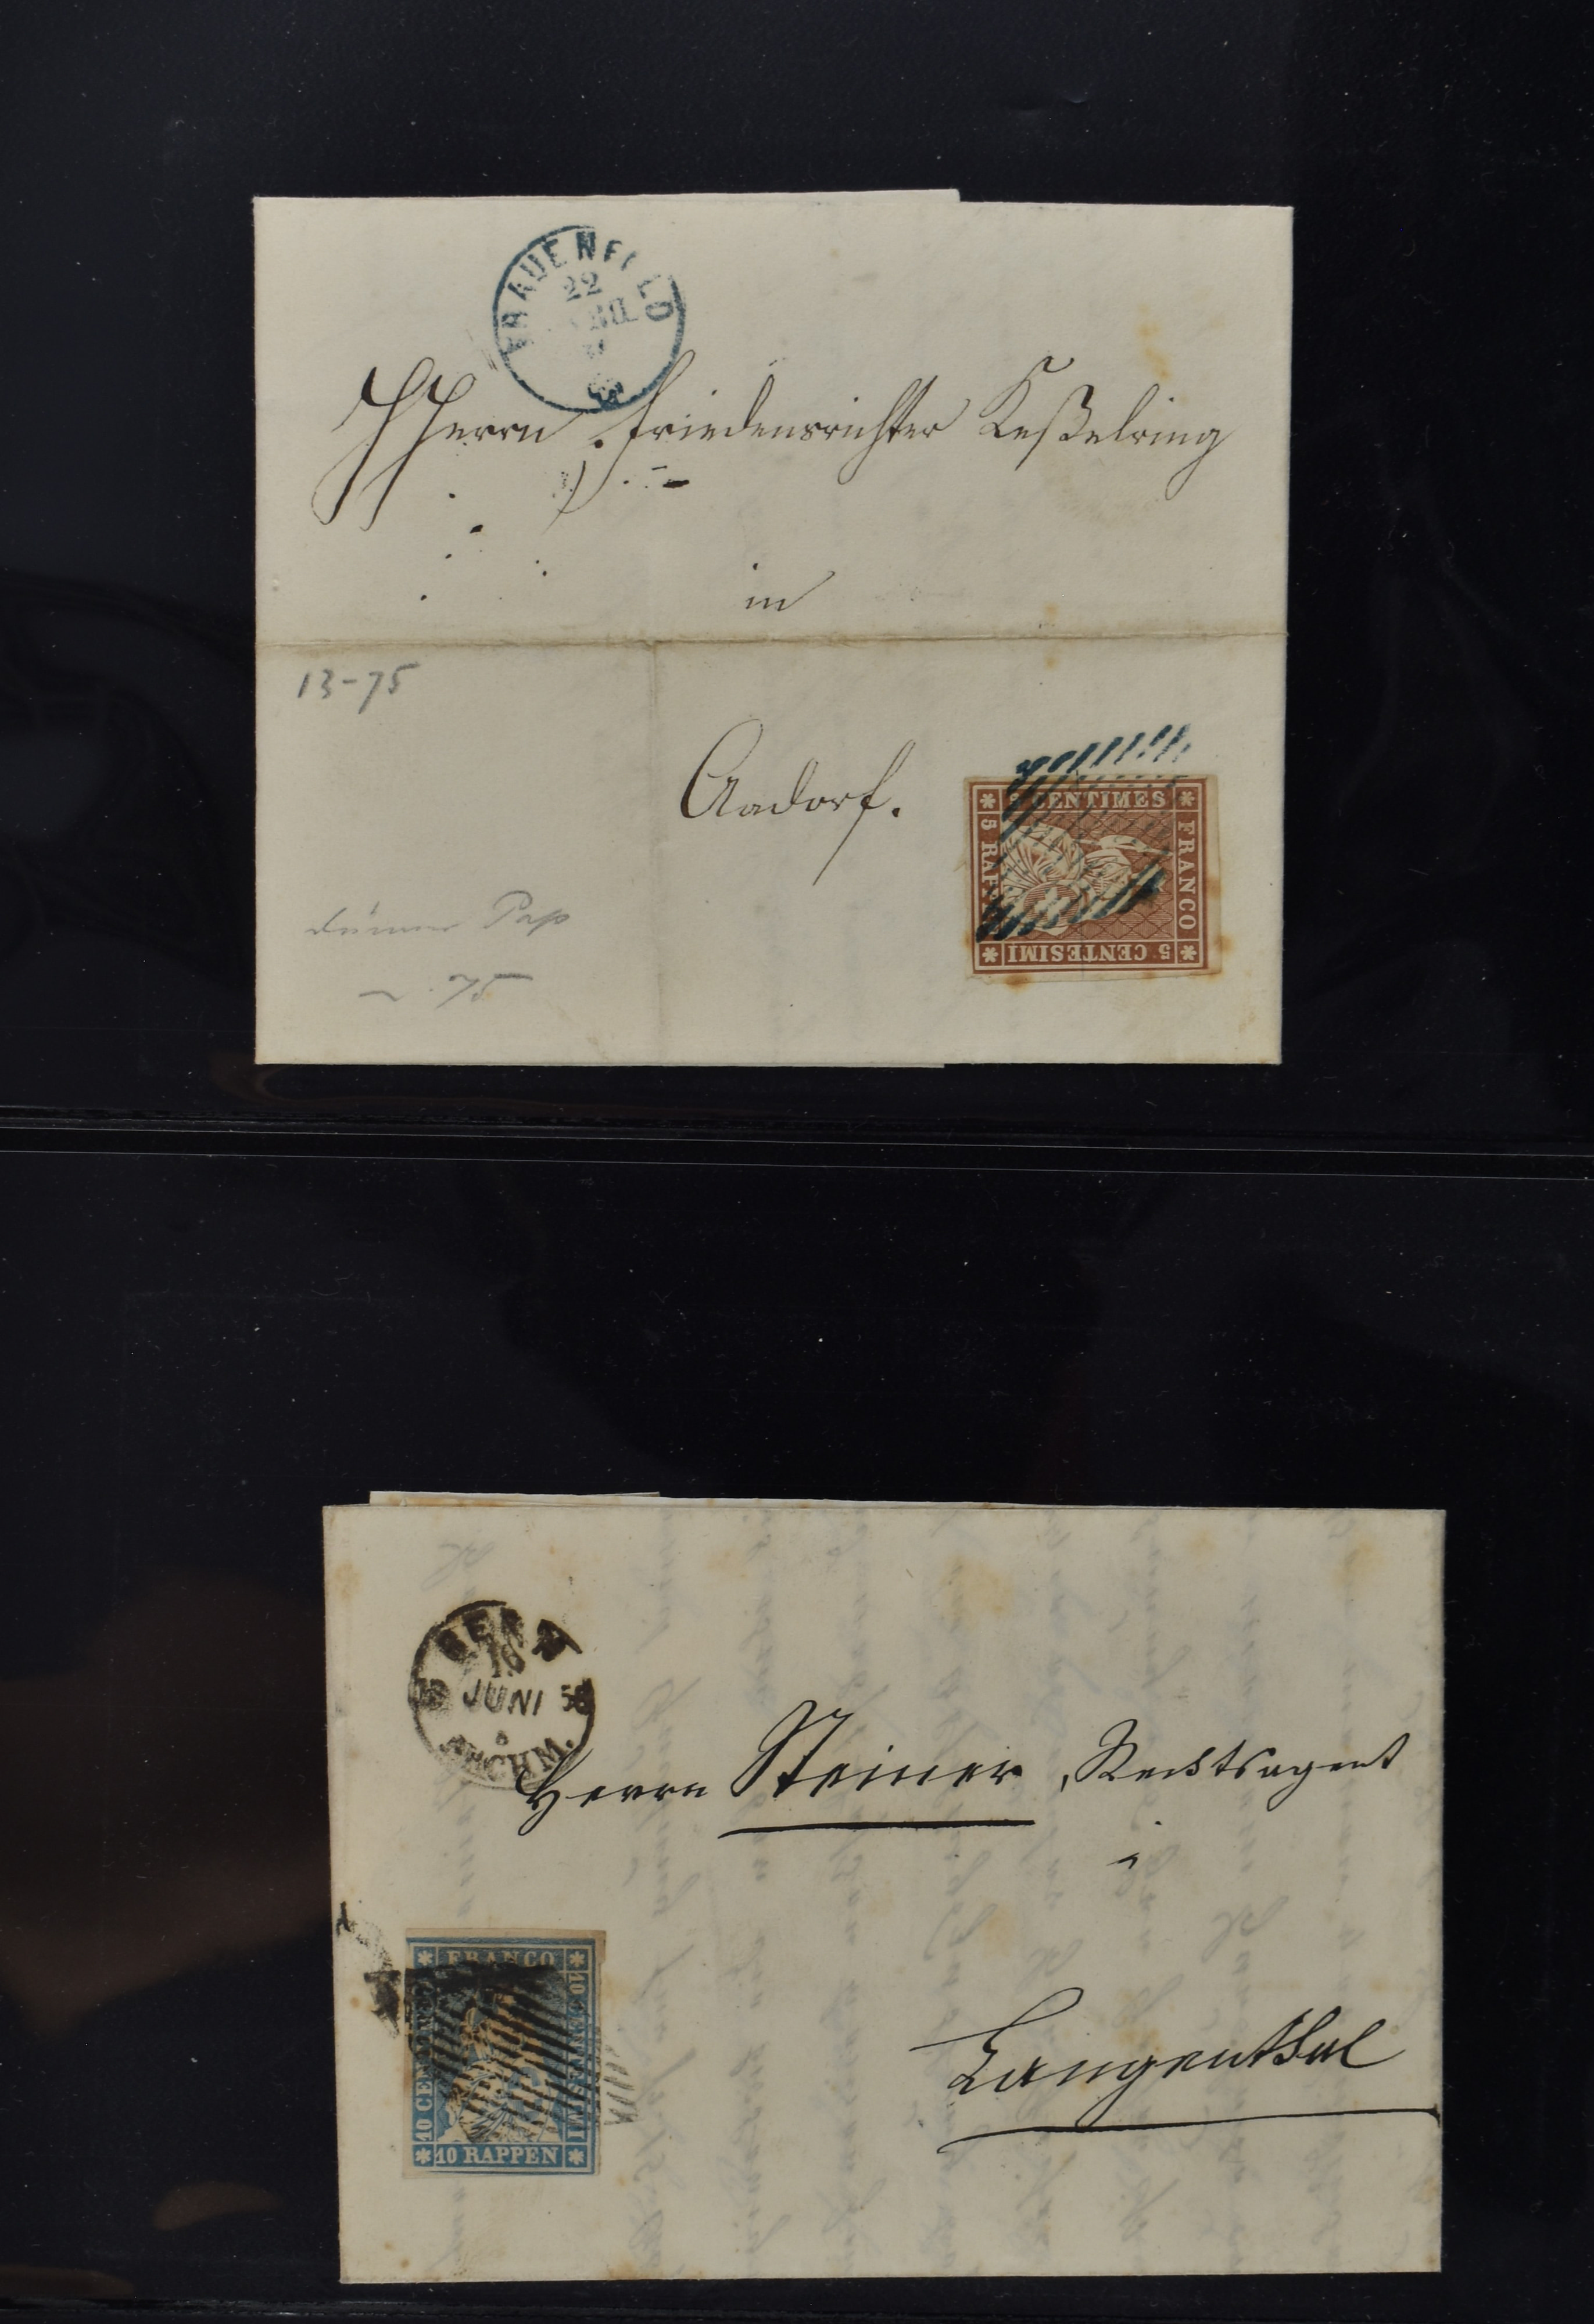 FRAUENFELD
22
HHerrn Friedensrichter Keßelring
in
13-75
Aadorf.
5 CENTIMES
FRANCO
5 CENTESIMI
5 RAP
dünnes Pap
75
BERN
16
JUNI 5
NACHM.
Herrn Steiner, Rechtsagent
i
Langenthal
FRANCO
10 CENTESIMI
10 RAPPEN
10 CEN